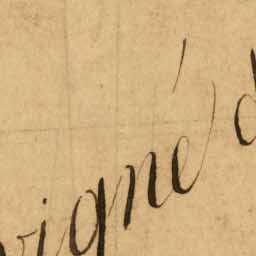 vigné d